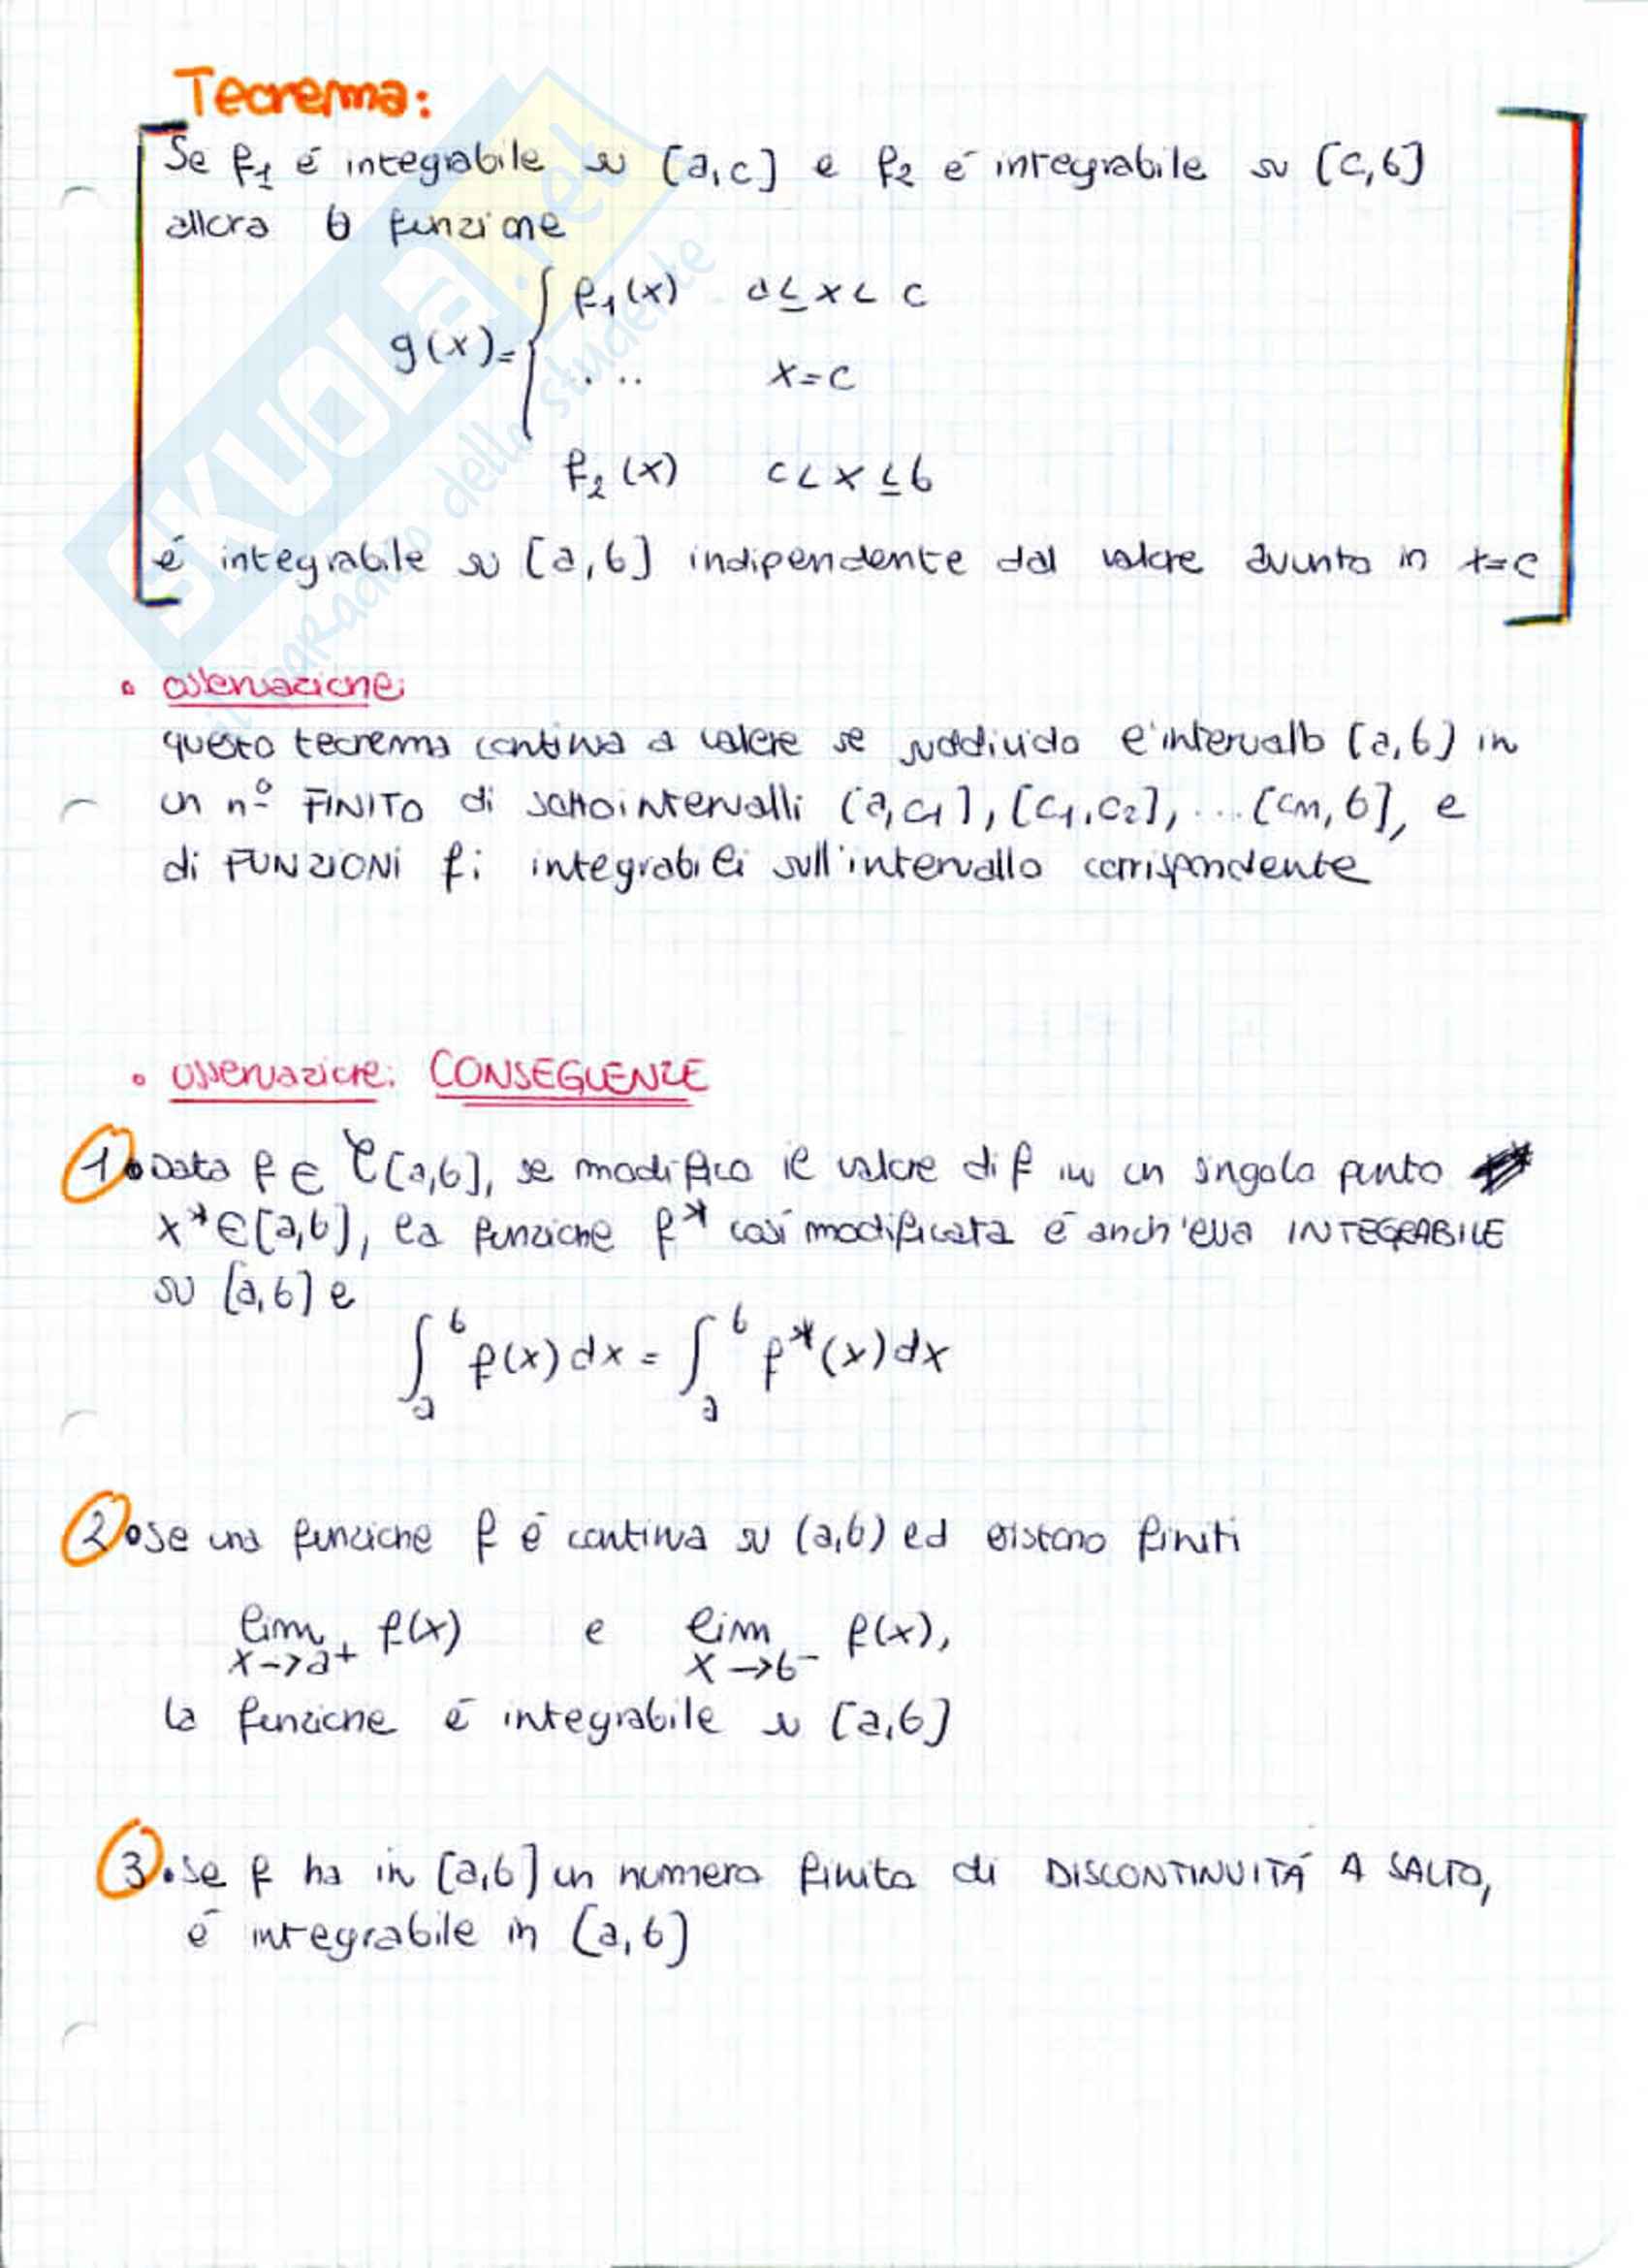 Teorema:
Se f₁ é integrabile su [a,c] e f₂ é integrabile su [c,b]
allora la funzione
f₁(x) a≤x<c
g(x)={
... x=c
f₂(x) c<x≤b
é integrabile su [a,b] indipendente dal valore avunto in x=c
• osservazione:
questo teorema continua a valere se suddivido l'intervallo [a,b] in
un nº FINITO di sottointervalli [a,c₁], [c₁,c₂], ...[cm,b], e
di FUNZIONI fi integrabili sull'intervallo corrispondente
• osservazione: CONSEGUENZE
1• Data f ∈ C[a,b], se modifico il valore di f in un singolo punto
x* ∈[a,b], la funzione f* così modificata é anch'essa INTEGRABILE
su [a,b] e
∫ₐᵇ f(x)dx = ∫ₐᵇ f*(x)dx
2• Se una funzione f é continua su (a,b) ed esistono finiti
lim x→a⁺ f(x) e lim x→b⁻ f(x),
la funzione é integrabile su [a,b]
3• Se f ha in [a,b] un numero finito di DISCONTINUITÁ A SALTO,
é integrabile in [a,b]
SKUOLA.net
il paradiso dello studente